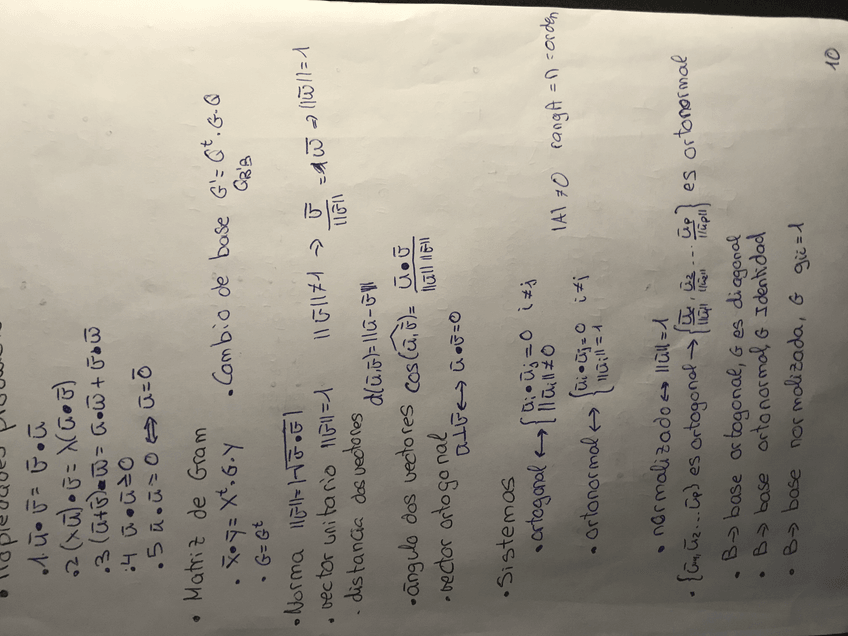 • Propiedades produc
• 1. ū • v̄ = v̄ • ū
• 2 (λū) • v̄ = λ(ū • v̄)
• 3 (ū+v̄) • w̄ = ū • w̄ + v̄ • w̄
• 4 ū • ū ≥ 0
• 5 ū • ū = 0 ⟺ ū = 0̄
• Matriz de Gram
• x̄ • ȳ = Xᵗ · G · Y • Cambio de base G' = Qᵗ · G · Q
• G = Gᵗ Q_B'B
• Norma ||v̄|| = |√v̄ • v̄|
• vector unitario ||v̄|| = 1 ||v̄|| ≠ 1 → v̄/||v̄|| = w̄ ⇒ ||w̄|| = 1
· distancia dos vectores
d(ū,v̄) = ||ū - v̄||
• ángulo dos vectores cos(ū,v̄) = ū • v̄ / ||ū|| ||v̄||
• vector ortogonal
ū ⊥ v̄ ⟷ ū • v̄ = 0
• Sistemas
• ortogonal ⟷ { ūi • ūj = 0 i ≠ j
||ūi|| ≠ 0
|A| ≠ 0 rang A = n = orden
• ortonormal ⟷ { ūi • ūj = 0 i ≠ j
||ūi|| = 1
• normalizado ⟷ ||ū|| = 1
• {ū1, ū2 ... ūp} es ortogonal → {ū1/||ū1||, ū2/||ū2|| ... ūp/||ūp||} es ortonormal
• B → base ortogonal, G es diagonal
• B → base ortonormal, G Identidad
• B → base normalizada, G gii = 1
10